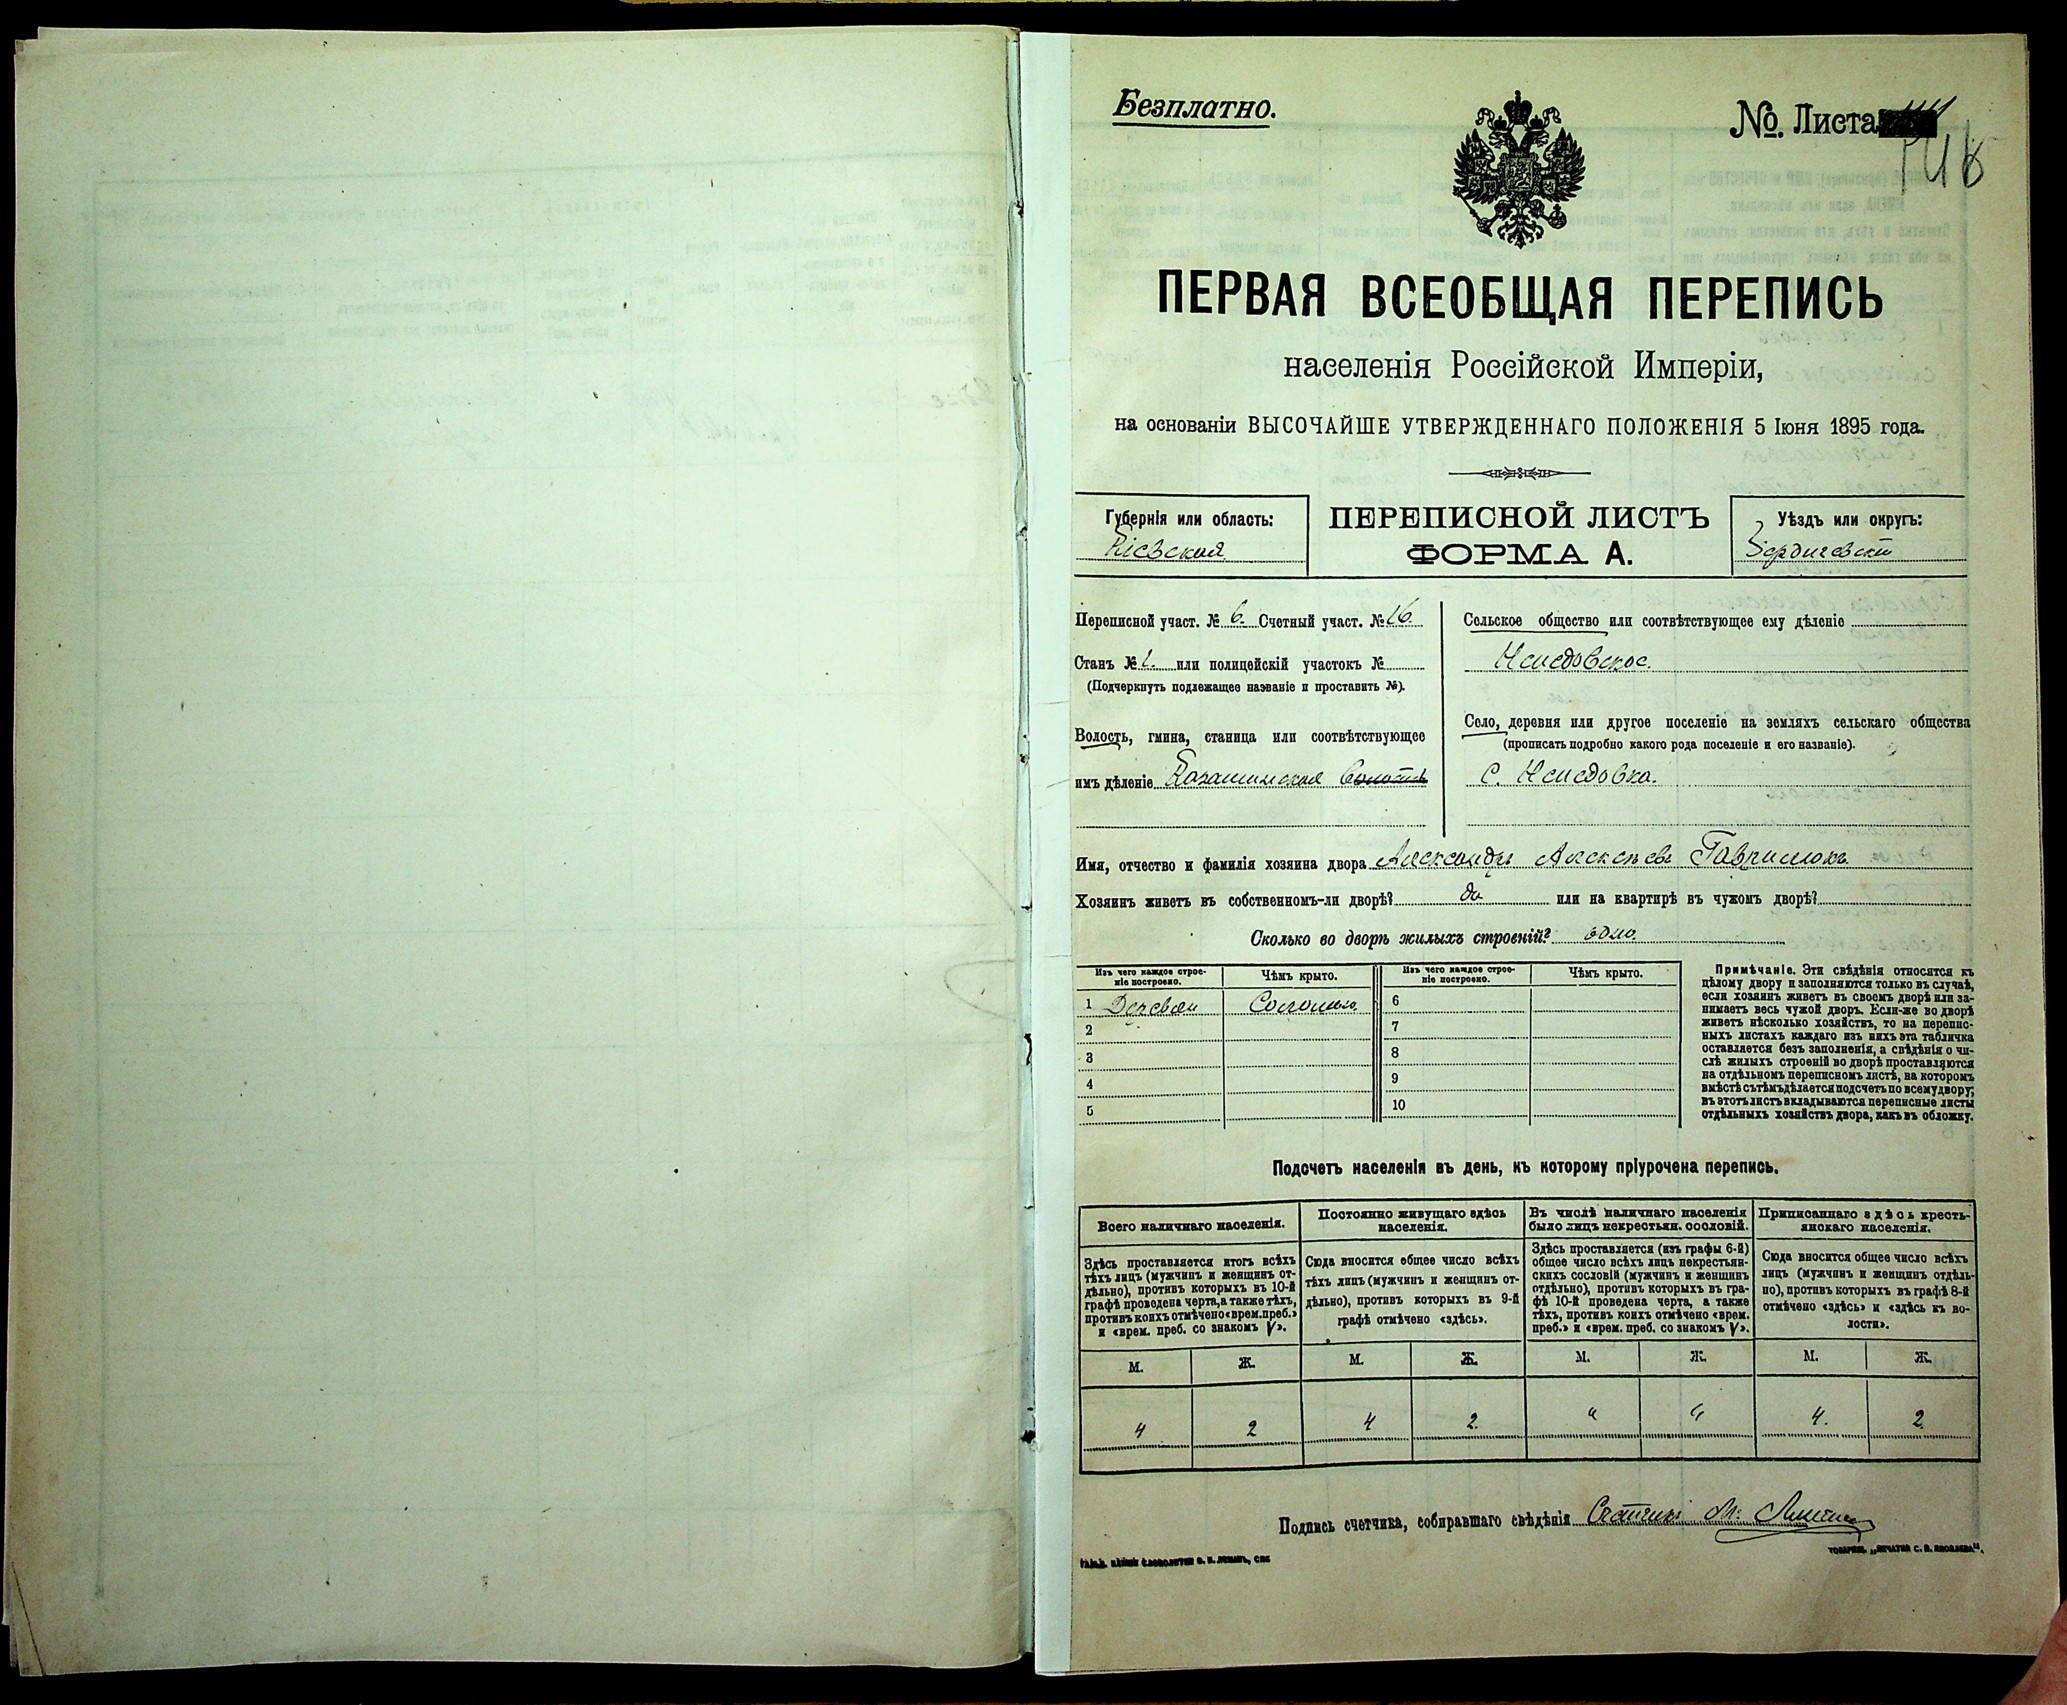 Безплатно.
№. Листа
ПЕРВАЯ ВСЕОБЩАЯ ПЕРЕПИСЬ
населенія Россійской Имперіи,
на основаніи ВЫСОЧАЙШЕ УТВЕРЖДЕННАГО ПОЛОЖЕНІЯ 5 Іюня 1895 года.
Губернія или область:
Кіевская
ПЕРЕПИСНОЙ ЛИСТЪ
ФОРМА А.
Уѣздъ или округъ:
Бердичевскій
Переписной участ. № 6. Счетный участ. № 16.
Станъ № 1. или полицейскій участокъ №
(Подчеркнуть подлежащее названіе и проставить №).
Волость, гмина, станица или соотвѣтствующее
имъ дѣленіе
Сельское общество или соотвѣтствующее ему дѣленіе
Село, деревня или другое поселеніе на земляхъ сельскаго общества
(прописать подробно какого рода поселеніе и его названіе).
с.
Имя, отчество и фамилія хозяина двора Александръ Алексѣевъ Гаврилюкъ
Хозяинъ живетъ въ собственномъ-ли дворѣ? да или на квартирѣ въ чужомъ дворѣ?
Сколько во дворѣ жилыхъ строеній? одно.
Изъ чего каждое строе-
ніе построено.
Чѣмъ крыто.
Изъ чего каждое строе-
ніе построено.
Чѣмъ крыто.
1 Деревян Соломою 6
2 7
3 8
4 9
5 10
Примѣчаніе. Эти свѣдѣнія относятся къ
цѣлому двору и заполняются только въ случаѣ,
если хозяинъ живетъ въ своемъ дворѣ или за-
нимаетъ весь чужой дворъ. Если-же во дворѣ
живетъ нѣсколько хозяйствъ, то на перепис-
ныхъ листахъ каждаго изъ нихъ эта табличка
оставляется безъ заполненія, а свѣдѣнія о чи-
слѣ жилыхъ строеній во дворѣ проставляются
на отдѣльномъ переписномъ листѣ, на которомъ
вмѣстѣ съ тѣмъ дѣлается подсчетъ по всему двору;
въ этотъ листъ вкладываются переписные листы
отдѣльныхъ хозяйствъ двора, какъ въ обложку.
Подсчетъ населенія въ день, къ которому пріурочена перепись.
Всего наличнаго населенія.
Здѣсь проставляется итогъ всѣхъ
тѣхъ лицъ (мужчинъ и женщинъ от-
дѣльно), противъ которыхъ въ 10-й
графѣ проведена черта, а также тѣхъ,
противъ коихъ отмѣчено «врем. преб.»
и «врем. преб. со знакомъ V».
Постоянно живущаго здѣсь
населенія.
Сюда вносится общее число всѣхъ
тѣхъ лицъ (мужчинъ и женщинъ от-
дѣльно), противъ которыхъ въ 9-й
графѣ отмѣчено «здѣсь».
Въ числѣ наличнаго населенія
было лицъ некрестьян. сословій.
Здѣсь проставляется (изъ графы 6-й)
общее число всѣхъ лицъ некрестьян-
скихъ сословій (мужчинъ и женщинъ
отдѣльно), противъ которыхъ въ гра-
фѣ 10-й проведена черта, а также
тѣхъ, противъ коихъ отмѣчено «врем.
преб.» и «врем. преб. со знакомъ V».
Приписаннаго здѣсь кресть-
янскаго населенія.
Сюда вносится общее число всѣхъ
лицъ (мужчинъ и женщинъ отдѣль-
но), противъ которыхъ въ графѣ 8-й
отмѣчено «здѣсь» и «здѣсь къ во-
лости».
М. Ж. М. Ж. М. Ж. М. Ж.
4 2 4 2. " " 4. 2.
Подпись счетчика, собиравшаго свѣдѣнія